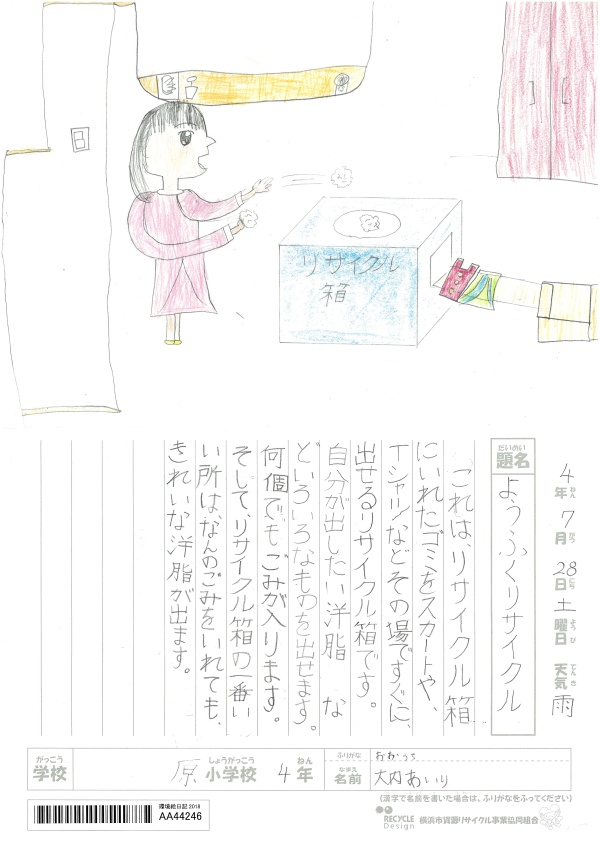 リサイクル
箱
4年 7月 28日 土曜日 天気 雨
ねん がつ にち ようび てんき
だいめい
題名
ようふくリサイクル
これは、リサイクル箱
にいれたゴミをスカートや、
Tシャツなどその場ですぐに、
出せるリサイクル箱です。
自分が出したい洋脂 な
どいろいろなものを出せます。
何個でもごみが入ります。
そして、リサイクル箱の一番い
い所は、なんのごみをいれても、
きれいな洋脂が出ます。
がっこう
学校
しょうがっこう ねん
原 小学校 4年
ふりがな おおうち
なまえ
名前 大内あいり
(漢字で名前を書いた場合は、ふりがなをふってください)
環境絵日記 2018
AA44246
RECYCLE Design
横浜市資源リサイクル事業協同組合